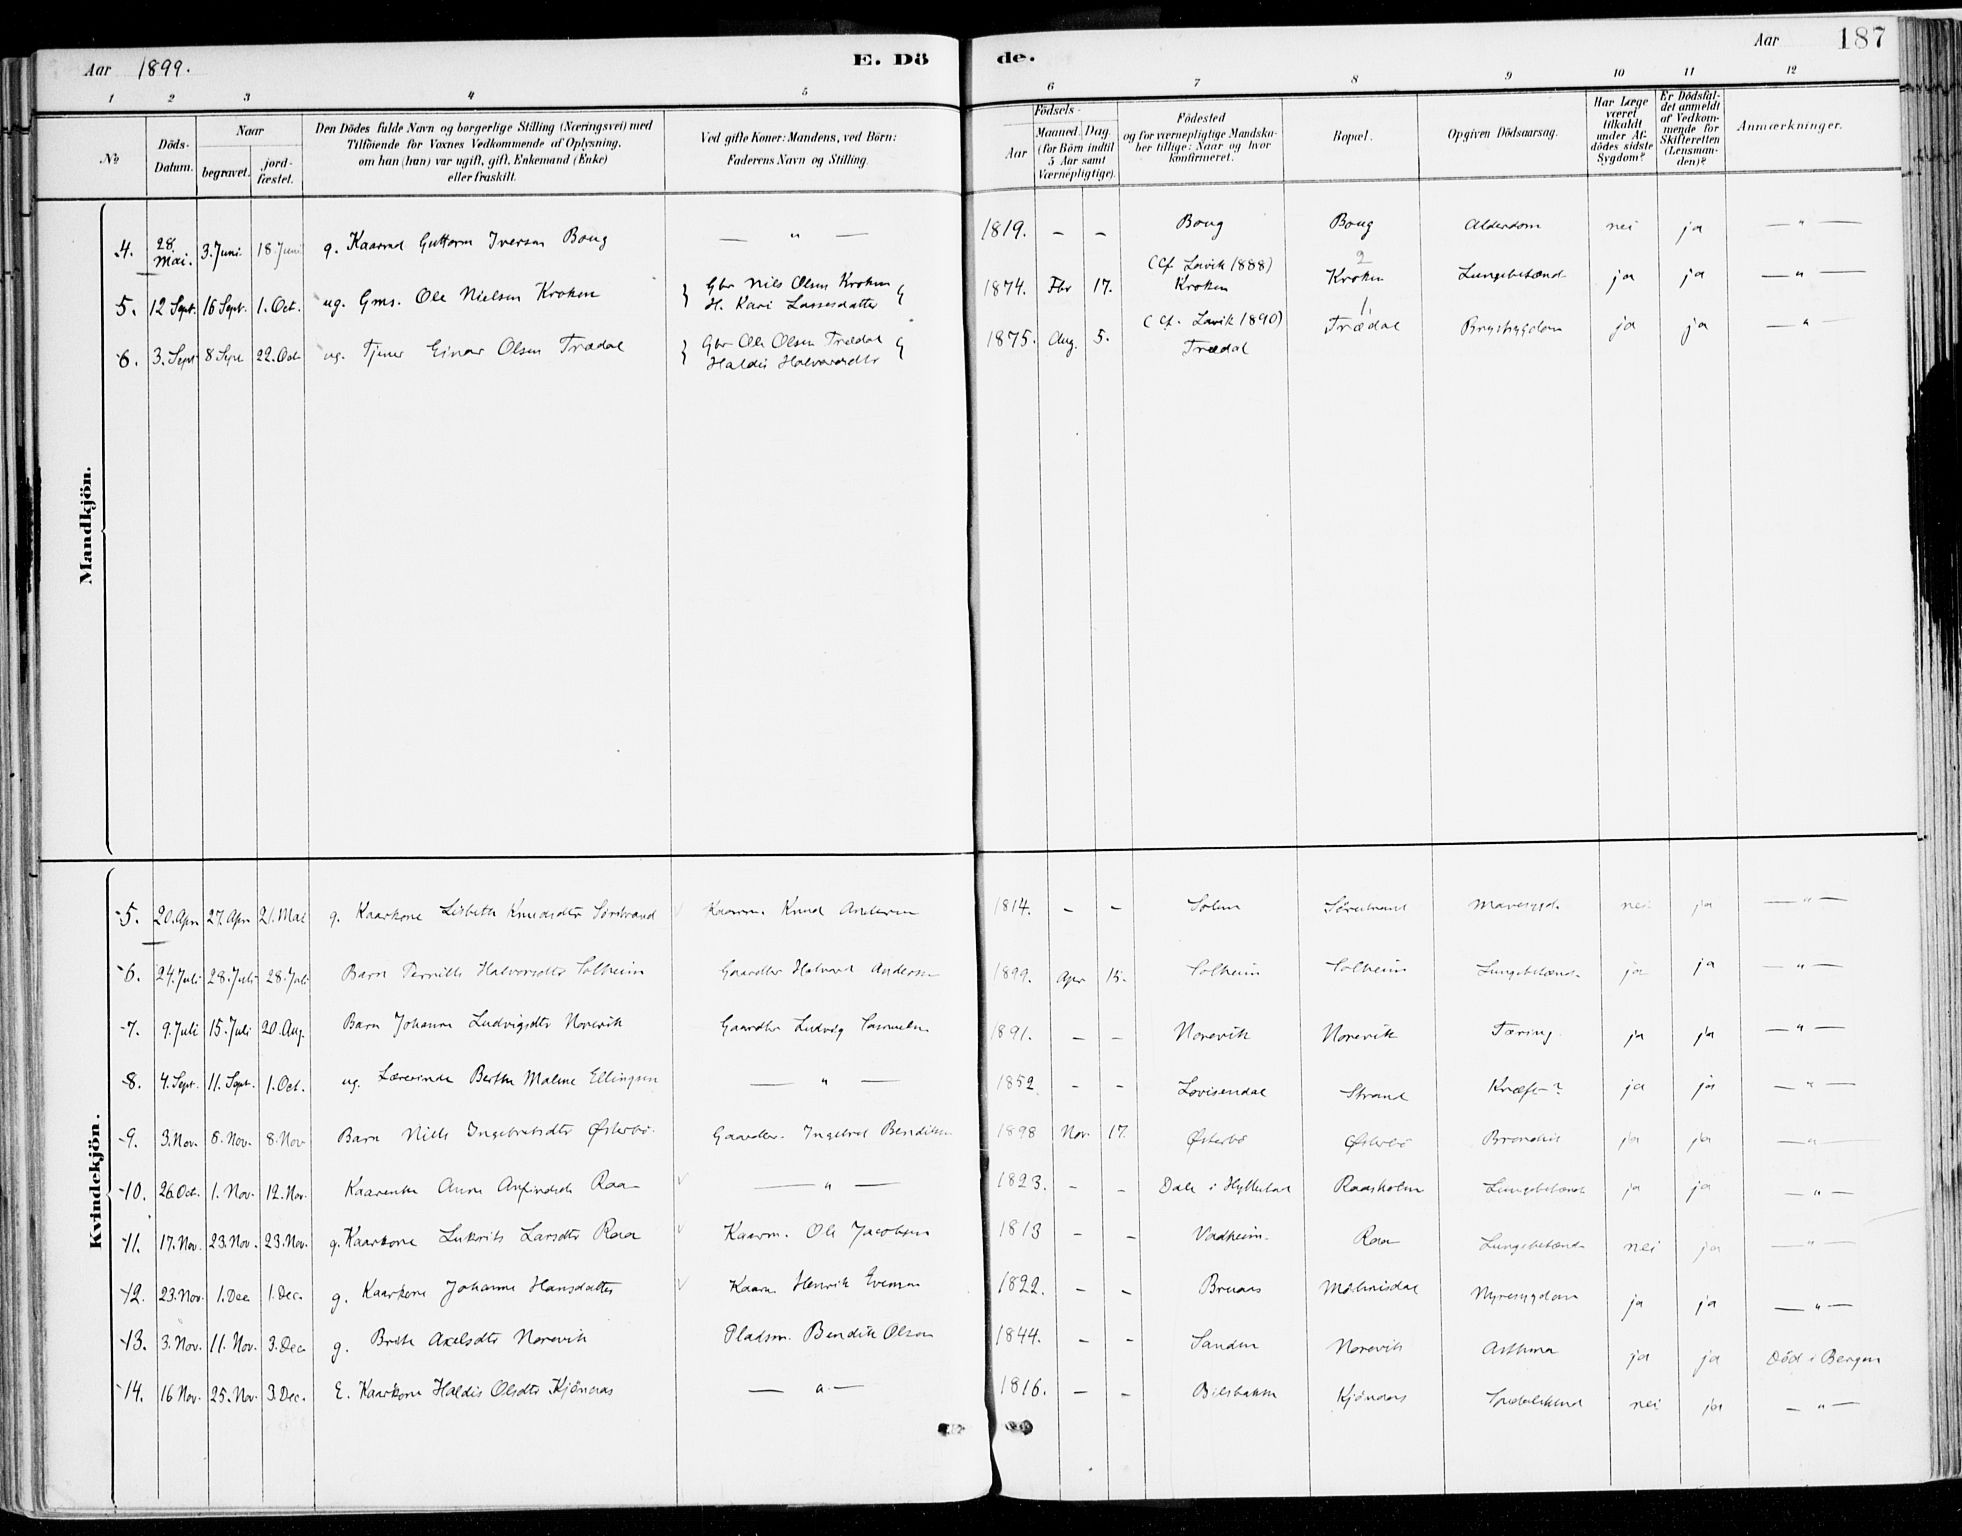 Aar 1899.
E. Dö
de.
Aar
187
1 2 3 4 5 6 7 8 9 10 11 12
№
Döds-
Datum.
Naar
begravet.
jord-
fæstet.
Den Dödes fulde Navn og borgerlige Stilling (Næringsvei) med
Tilföiende for Voxnes Vedkommende af Oplysning,
om han (hun) var ugift, gift, Enkemand (Enke)
eller fraskilt.
Ved gifte Koner: Mandens, ved Börn:
Faderens Navn og Stilling.
Födsels-
Aar
Maaned. Dag.
(for Börn indtil
5 Aar samt
Værnepligtige).
Födested
og for værnepligtige Mandska-
ber tillige: Naar og hvor
konfirmeret.
Bopæl.
Opgiven Dödsaarsag.
Har Læge
været
tilkaldt
under Af-
dödes sidste
Sygdom?
Er Dödsfal-
det anmeldt
af Vedkom-
mende for
Skifteretten
(Lensman-
den)?
Anmærkninger.
Mandkjön.
4. 28. Mai. 3. Juni 18. Juni g. Kaarmd Guttorm Iversen Boug — " — 1819. – – Boug Boug Alderdom nei ja — " —
5. 12 Sept. 16 Sept. 1. Oct. ug. Gms. Ole Nielsen Kroken } Gbr Nils Olsen Kroken
H. Kari Lassesdatter 1874. Fbr 17. (Cf. Lavik 1888)
Kroken 2 Kroken Lungebetænd ja ja — " —
6. 3. Sept 8 Sept 22. Oct ug. Tjener Einar Olsen Trædal } Gbr Ole Olsen Trædal
Haldis Halvorsdtr 1875. Aug. 5. (Cf. Lavik 1890)
Trædal 1 Trædal Brystsygdom ja ja — " —
Kvindekjön.
5. 20. Apr 27. Apr 21. Mai g. Kaarkone Lisbeth Knudsdtr Sørstrand Kaarm. Knud Andersen 1814. – – Solem Sørestrand Mavesygd. nei ja — " —
6. 24. Juli 28. Juli 28. Juli Barn Pernille Halvorsdtr Solheim Gaardbr Halvard Andersen 1899. Apr 15. Solheim Solheim Lungebetænd. ja ja — " —
7. 9. Juli 15. Juli 20. Aug. Barn Johanne Ludvigsdtr Norevik Gaardbr Ludvig Samuelsen 1891. – – Norevik Norevik Tæring. ja ja — " —
8. 4. Sept. 11. Sept. 1. Oct. ug. Lærerinde Berthe Maline Ellingsen — " — 1852. – – Lovisendal Strand Kræft–? ja ja — " —
9. 3. Nov. 8. Nov. 8. Nov Barn Nille Ingebretsdtr Østerbø. Gaardbr. Ingebret Bendiksen 1898 Nov 17. Østerbø Østerbø Bronchit ja ja — " —
10. 26. Oct. 1. Nov. 12. Nov. Kaarenke Anne Anfindsdtr Raa — " — 1823. – – Dale i Hyllestad Raasholm Lungebetænd ja ja — " —
11. 17. Nov. 23. Nov. 23. Nov. g. Kaarkone Lukrits Larsdtr Raa Kaarm. Ole Jacobsen 1813 – – Vadheim. Raa Lungebetænd. nei ja — " —
12. 23. Nov. 1. Dec 1. Dec. g. Kaarkone Johanne Hansdatter Kaarm. Henrik Evensen 1822. – – Bruaas Nyresygdom ja ja — " —
13. 3. Nov. 11. Nov. 3. Dec. g. Brite Axelsdtr Norevik Pladsm. Bendik Olsen 1844. – – Sanden Norevik Asthma ja ja Död i Bergen
14. 16 Nov. 25. Nov 3. Dec. E. Kaarkone Haldis Olsdtr Kjönaas — " — 1816. – – Kjönaas nei ja — " —